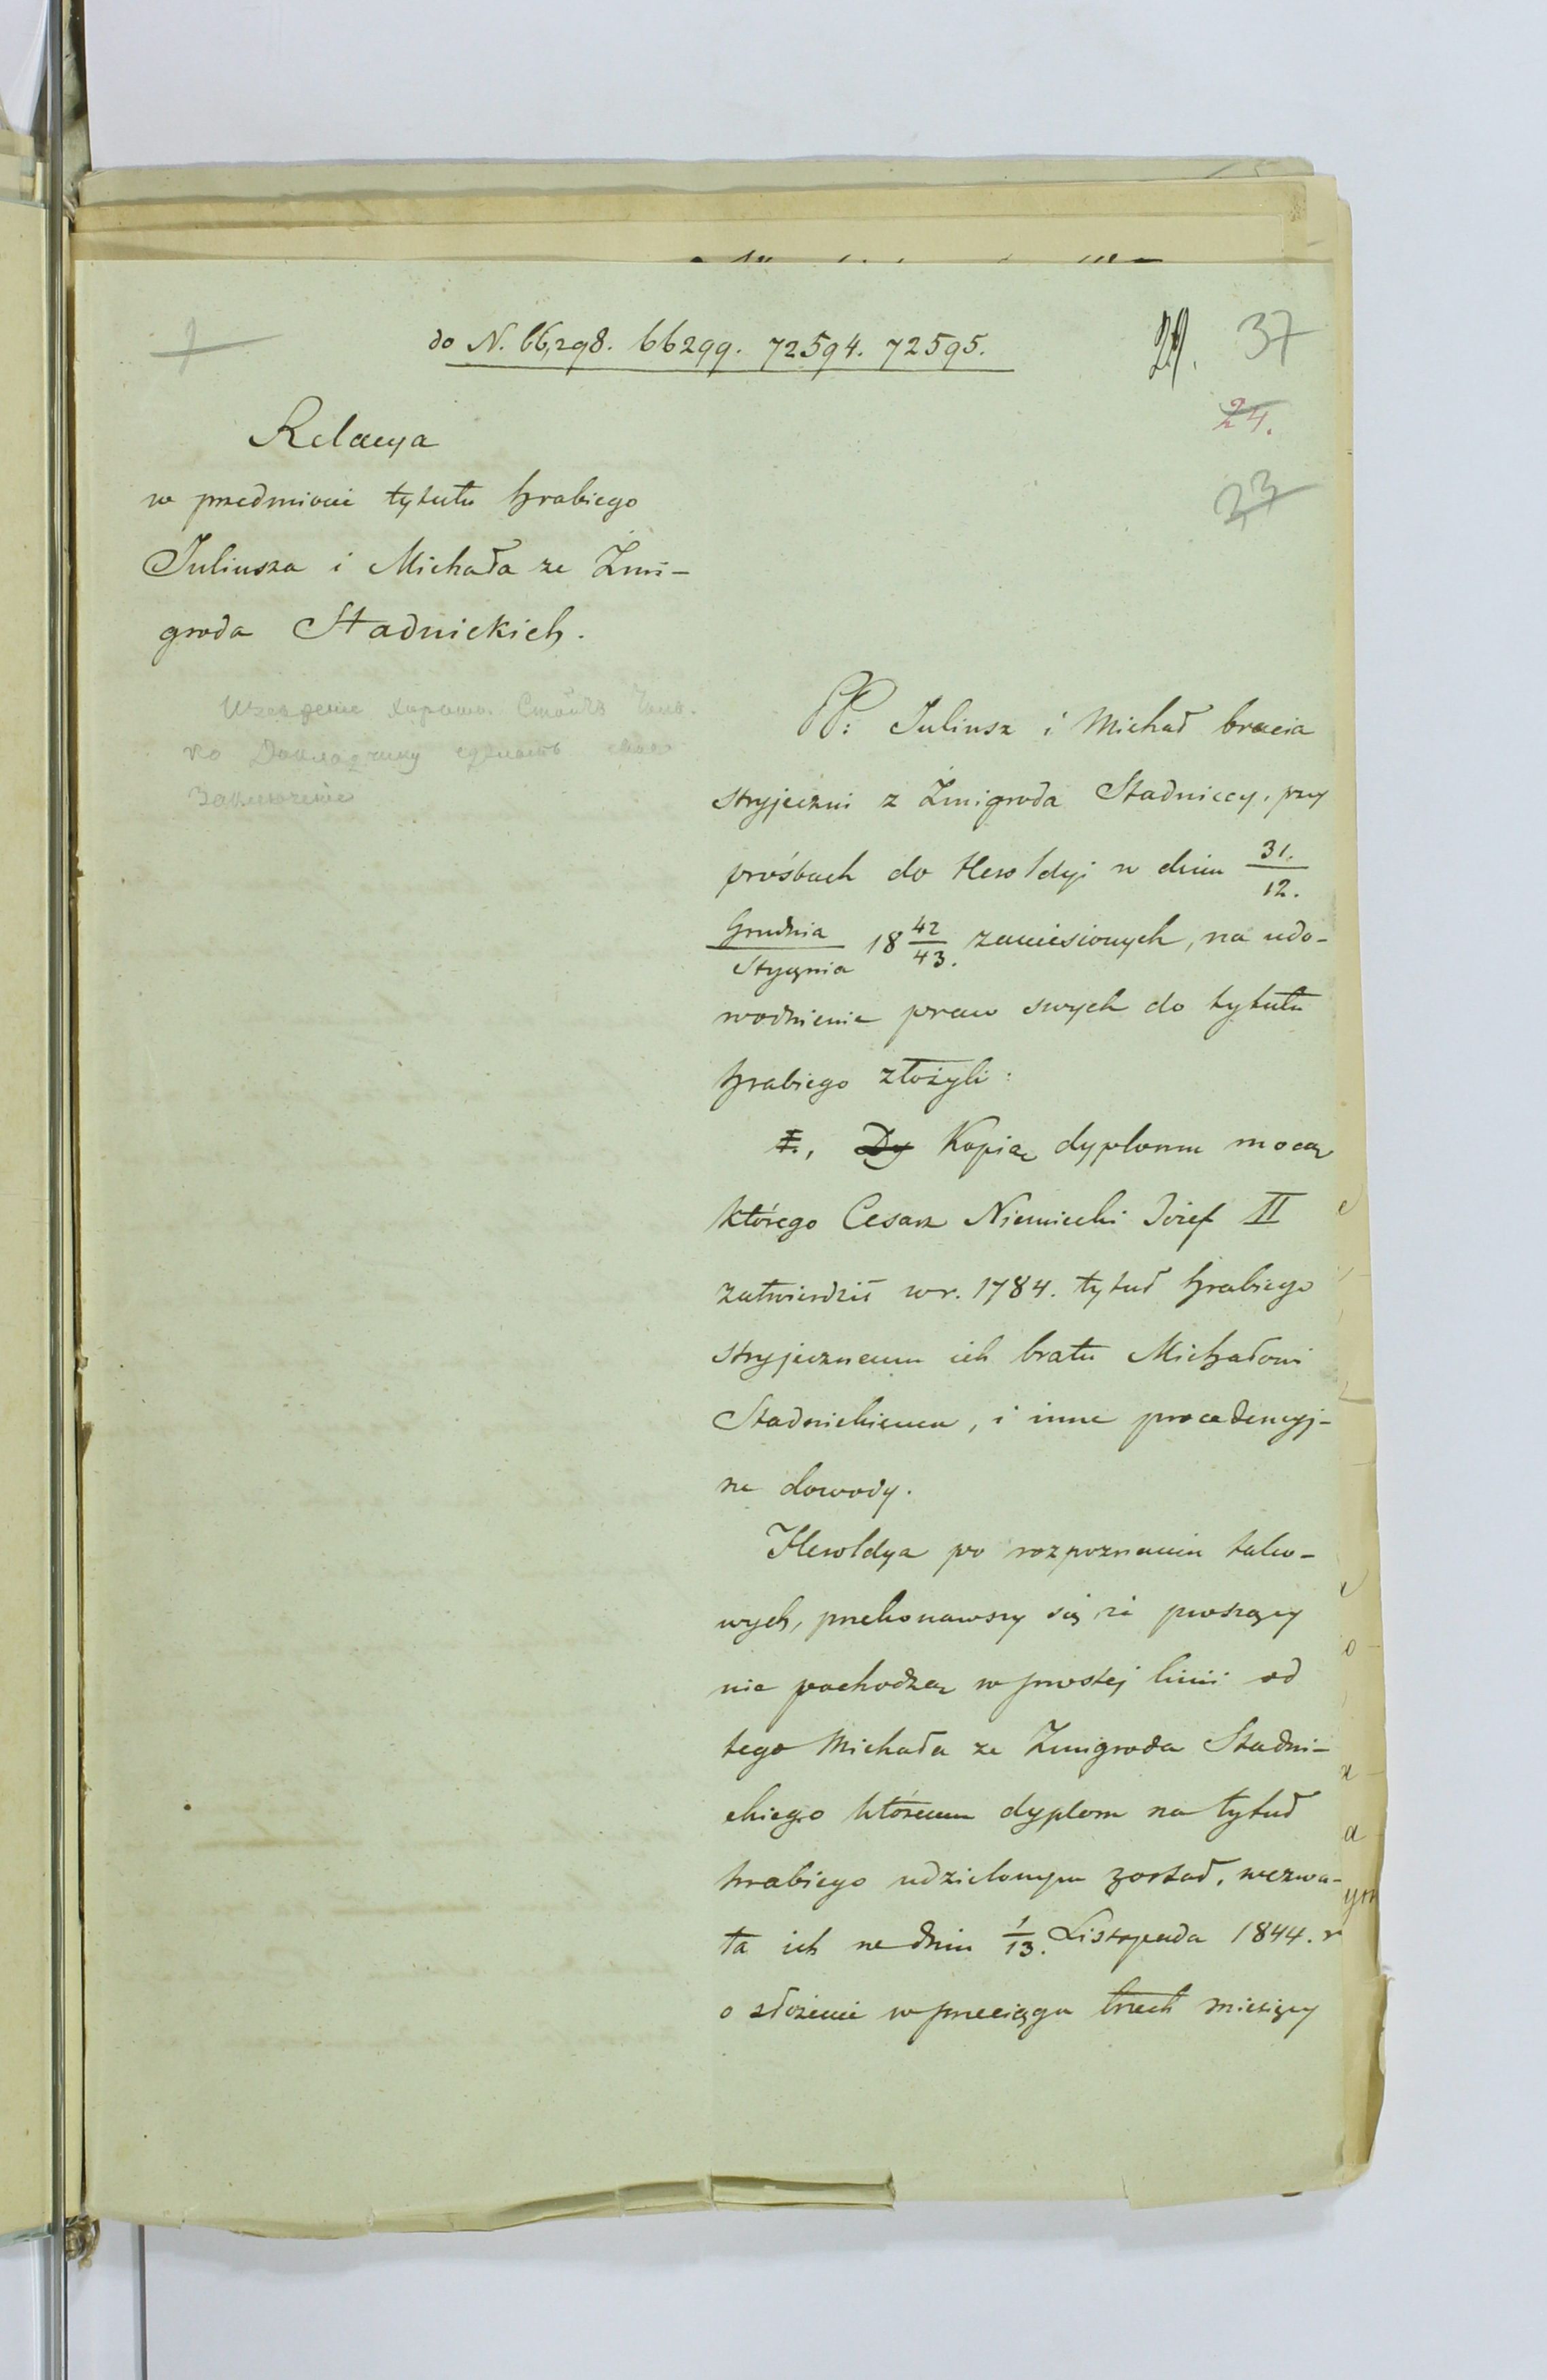 do N. 66,298. 66299. 72594. 72595.
29. 37
24.
23
Relacya
w przedmiocie tytułu hrabiego
Juliusza i Michała ze Żmi-
groda Stadnickich.
заключение
PP: Juliusz i Michał bracia
stryjeczni z Żmigroda Stadniccy, przy
prośbach do Heroldyi w dniu 31./12.
Grudnia/Stycznia 18 42/43. zaniesionych, na udo-
wodnienie praw swych do tytułu
hrabiego złożyli:
I., Dy Kopią dyplomu mocą
którego Cesarz Niemiecki Józef II
zatwierdził w r. 1784. tytuł hrabiego
stryjecznemu ich bratu Michałowi
Stadnickiemu, i inne procedencyj-
ne dowody.
Heroldya po rozpoznaniu tako-
wych, przekonawszy się, że proszący
nie pochodzą w prostej linii od
tego Michała ze Żmigroda Stadni-
ckiego któremu dyplom na tytuł
hrabiego udzielonym został, wezwa-
ła ich w dniu 1/13. Listopada 1844. r
o złożenie w przeciągu trzech miesięcy